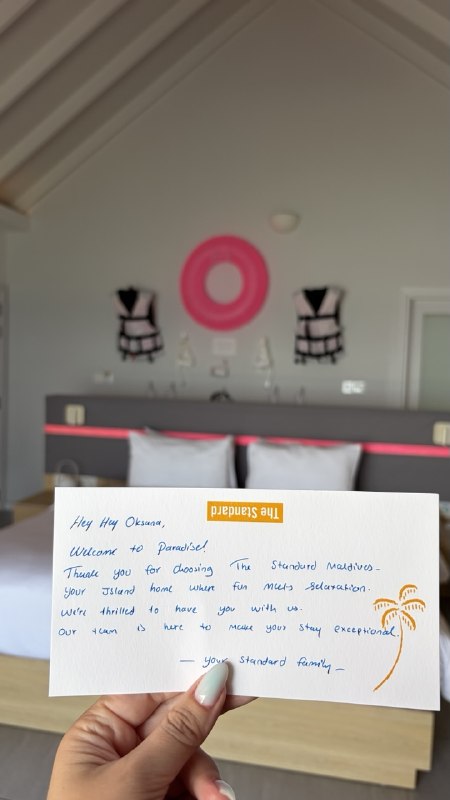 The Standard
Hey Hey Oksana,
Welcome to Paradise!
Thank you for choosing The Standard Maldives-
Your Island home where fun meets relaxation.
We're thrilled to have you with us.
Our team is here to make your stay exceptional.
— your Standard family —